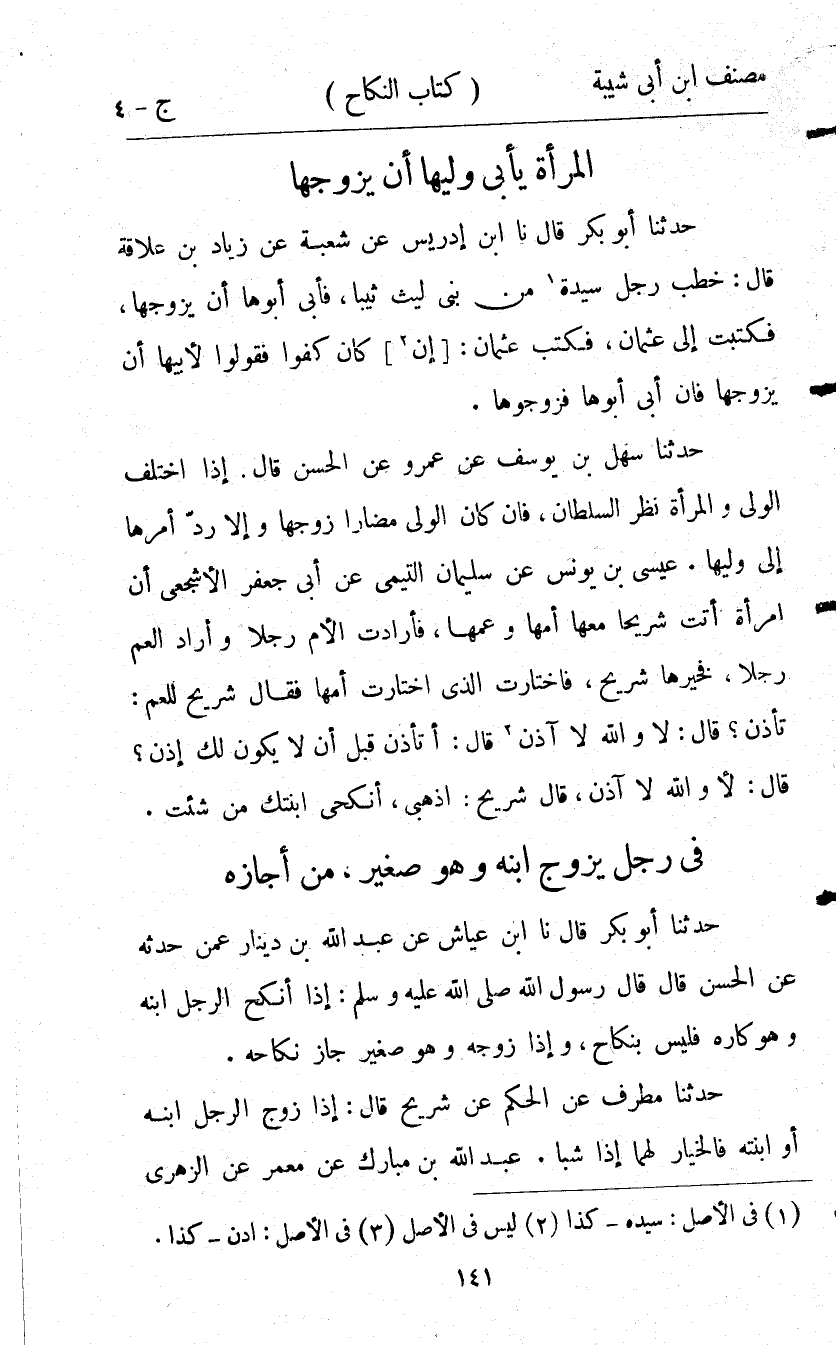 مصنف ابن أبى شيبة ( كتاب النكاح ) ج - ٤
المرأة يأبى وليها أن يزوجها
حدثنا أبو بكر قال نا ابن إدريس عن شعبة عن زياد بن علاقة
قال : خطب رجل سيدة١ من بنى ليث ثيبا ، فأبى أبوها أن يزوجها ،
فكتبت إلى عثمان ، فكتب عثمان : [ إن٢ ] كان كفوا فقولوا لأبيها أن
يزوجها فان أبى أبوها فزوجوها .
حدثنا سهل بن يوسف عن عمرو عن الحسن قال . إذا اختلف
الولى و المرأة نظر السلطان ، فان كان الولى مضارا زوجها و إلا ردّ أمرها
إلى وليها . عيسى بن يونس عن سليمان التيمى عن أبى جعفر الأشجعى أن
امرأة أتت شريحا معها أمها و عمها ، فأرادت الأم رجلا و أراد العم
رجلا ، فخيرها شريح ، فاختارت الذى اختارت أمها فقال شريح للعم :
تأذن ؟ قال : لا و الله لا آذن٢ قال : أ تأذن قبل أن لا يكون لك إذن ؟
قال : لأ و الله لا آذن ، قال شريح : اذهبى ، أنكحى ابنتك من شئت .
فى رجل يزوج ابنه و هو صغير ، من أجازه
حدثنا أبو بكر قال نا ابن عياش عن عبد الله بن دينار عمن حدثه
عن الحسن قال قال رسول الله صلى الله عليه و سلم : إذا أنكح الرجل ابنه
و هو كاره فليس بنكاح ، و إذا زوجه و هو صغير جاز نكاحه .
حدثنا مطرف عن الحكم عن شريح قال : إذا زوج الرجل ابنه
أو ابنته فالخيار لهما إذا شبا . عبد الله بن مبارك عن معمر عن الزهرى
(١) فى الأصل : سيده - كذا (٢) ليس فى الأصل (٣) فى الأصل : ادن - كذا .
١٤١